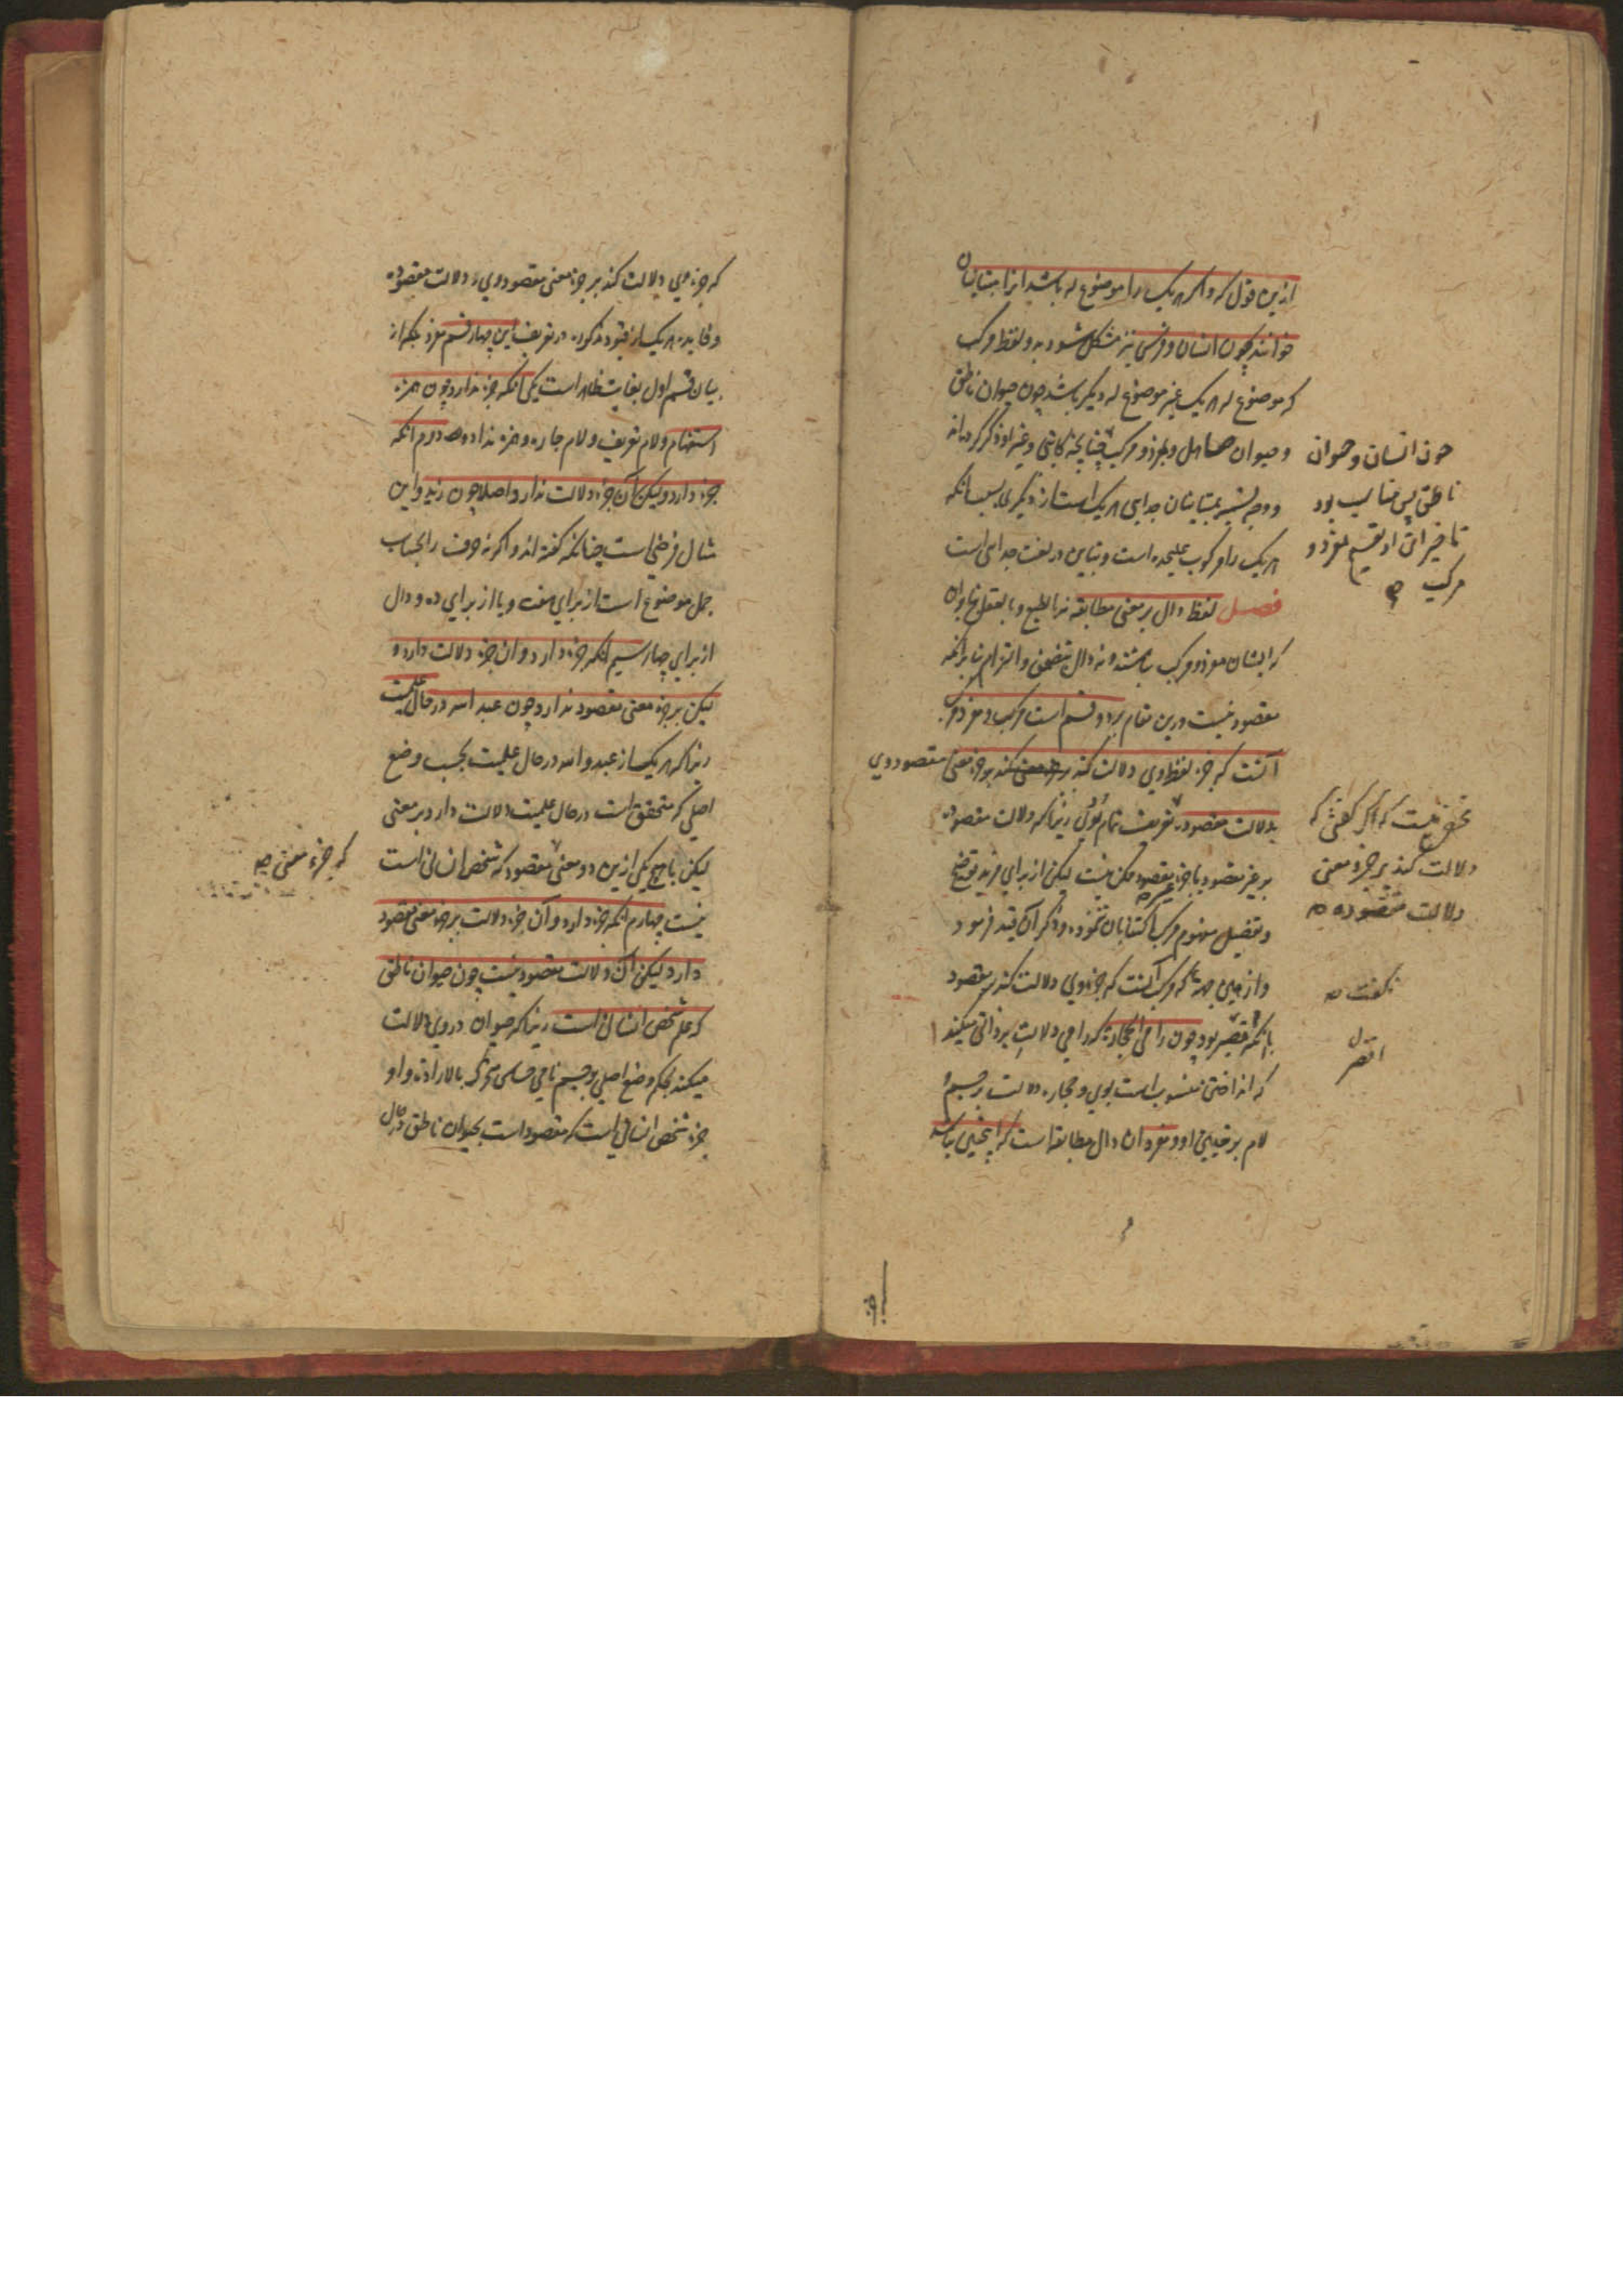 ازین قول که و اگر هر یک را موضوع له باشد انرا متباینان
خوانند چون انسان و فرس نیز مشکل شود بدو لفظ مرکب
که موضوع له هر یک غیر موضوع له دیگر باشد چون حیوان ناطق
و حیوان صاهل و بمفرد و مرکب چنانچه کاتبی و غیر او ذکر کرده اند
و وجه تسمیه بمتباینان جدایی هر یک است از دیگری بسبب انکه
هر یک را مرکوب علیحده است و تباین در لغت جدایی است
فصل لفظ دال بر معنی مطابقه نه بالطبع و بالعقل
که ایشان مفرد و مرکب باشند و نه دال بتضمن و التزام بنا برانکه
مقصود نیست درین مقام بر دو قسم است مرکب و مفرد مرکب
آنست که جزء لفظ وی دلالت کند بر جزء معنی مقصود وی
بدلالت مقصوده تعریف تمام بودی زیرا که دلالت مقصوده
بر غیر مقصود یا جزء مقصود ممکن نیست لیکن از برای مزید توضیح
و تفصیل مفهوم مرکب اکتفا بان ننموده و ذکر آن قید فرمود
و از همین جهة که مرکب آنست که جزء وی دلالت کند بر مقصود
با انکه اقصر بود چون رامی الحجارة که رامی دلالت بر ذاتی میکند
که انداختن منسوب است بوی و حجاره دلالت بر جسم
لام بر تعیین او و مفرد ان دال مطابقه است که اینچنین باشد
چون انسان و حیوان
ناطق پس مناسب بود
تاخیر این از تقسیم مفرد و
مرکب
مخفی نیست که اگر گفتی که
دلالت کند بر جزء معنی
دلالت مقصوده
نگفت
اقصر
که جزء وی دلالت کند بر جزء معنی مقصود وی دلالت مقصوده
و فایده هر یک از قیود مذکوره در تعریف این چهار قسم مفرد بلکه از
بیان قسم اول بغایت ظاهر است یکی آنکه جزء ندارد چون همزه
استفهام و لام تعریف و لام جاره و همزه ندا دوم انکه
جزء دارد ولیکن آن جزء دلالت ندارد اصلا چون زید و این
مثال فرضی است چنانکه گفته اند و اگر نه حرف را بحساب
جمل موضوع است از برای هفت و یا از برای ده و دال
از برای چهار سیم انکه جزء دارد و ان جزء دلالت دارد
لیکن بر جزء معنی مقصود ندارد چون عبد الله در حال علمیت
زیرا که هر یک از عبد و الله در حال علمیت بحسب وضع
اصلی که متحقق است در حال علمیت دلالت دارد بر معنی
لیکن با هیچ یکی ازین دو معنی مقصود که شخص انسانی است
نیست چهارم انکه جزء دارد و آن جزء دلالت بر جزء معنی مقصود
دارد لیکن آن دلالت مقصود نیست چون حیوان ناطق
که علم شخص انسانی است زیرا که حیوان در وی دلالت
میکند بحکم وضع اصلی بر جسم نامی حساس متحرک بالاراده و او
جزء شخص انسانی است که مقصود است بحیوان ناطق در حال
که جزء معنی